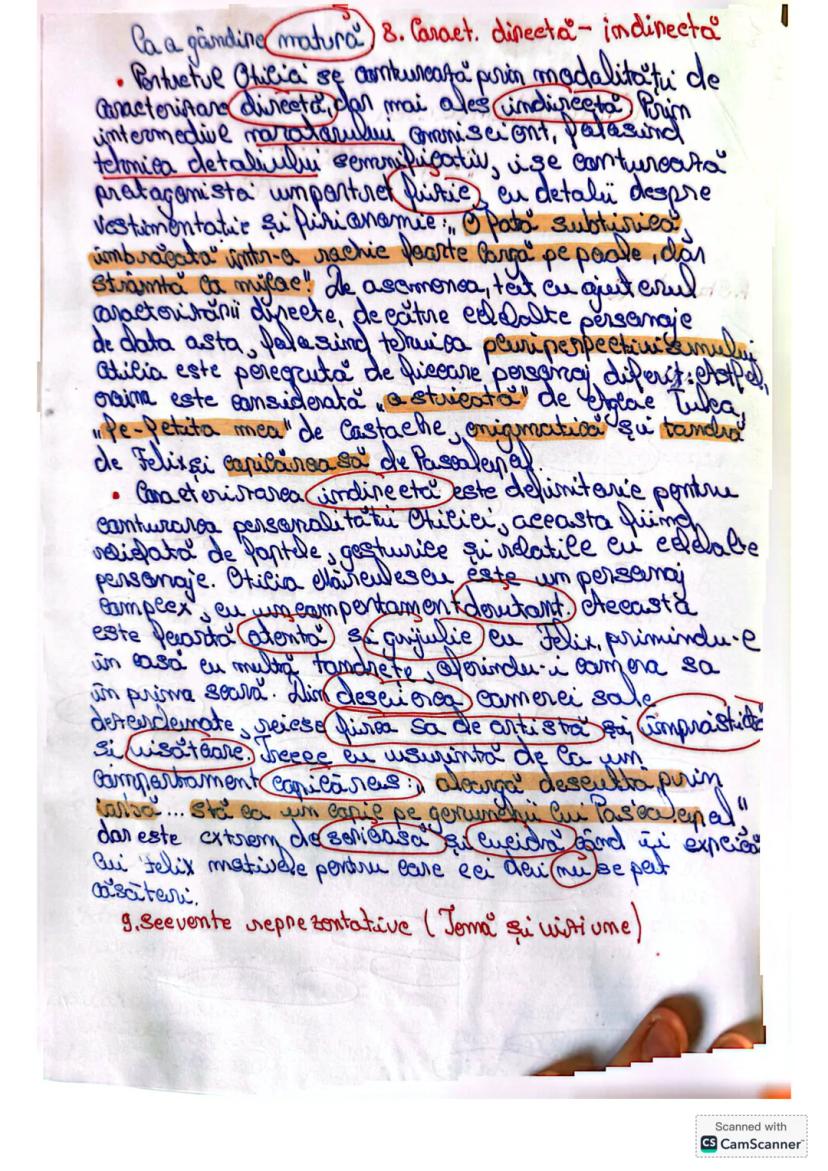 la a gândire matură 8. Caract. directă - indirectă
• Portretul Otiliei se conturează prin modalități de
caracterizare directă, dar mai ales indirectă. Prin
intermediul naratorului omniscient, folosind
tehnica detaliului semnificativ, i se conturează
protagonista un portret fizic, cu detalii despre
vestimentație și fizionomie: „O fată subțirică,
îmbrăcată într-o rochie foarte largă pe poale, dar
strâmtă la mijloc". De asemenea, tot cu ajutorul
caracterizării directe, de către celelalte personaje
de data asta, folosind tehnica pluriperspectivismului,
Otilia este percepută de fiecare personaj diferit: Astfel,
eroina este considerată „o stricată" de Aglae Tulea,
„Fe-Fetița mea" de Costache, enigmatică și tandră
de Felix și copilăroasă de Pascalopol.
• Caracterizarea indirectă este definitorie pentru
conturarea personalității Otiliei, aceasta fiind
reliefată de faptele, gesturile și relațiile cu celelalte
personaje. Otilia Mărculescu este un personaj
complex, cu un comportament derutant. Aceasta
este foarte atentă și grijulie cu Felix, primindu-l
în casă cu multă tandrețe, oferindu-i camera sa
în prima seară. Din descrierea camerei sale
dezordonate, reiese firea sa de artistă și împrăștiată
și visătoare. Trece cu ușurință de la un
comportament copilăresc: „aleargă desculță prin
iarbă... stă ca un copil pe genunchii lui Pascalopol"
dar este extrem de serioasă și lucidă când îi explică
lui Felix motivele pentru care cei doi nu se pot
căsători.
9. Secvente reprezentative (Temă și viziune)
Scanned with
CS CamScanner